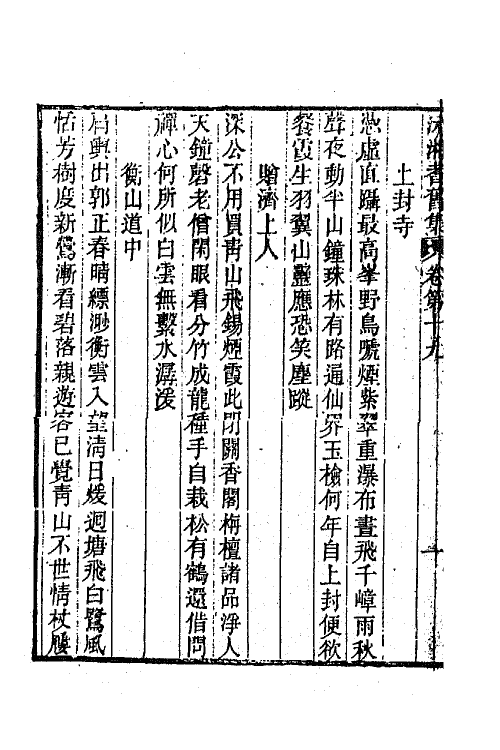 沅湘耆舊集卷第十九 十
上封寺
憑虛直躡最高峯野鳥嗁煙紫翠重瀑布晝飛千嶂雨秋
聲夜動半山鐘珠林有路通仙界玉檢何年自上封便欲
餐霞生羽翼山靈應恐笑塵蹤
贈濟上人
深公不用買靑山飛錫煙霞此閉關香閣栴檀諸品淨人
天鐘磬老僧閑眼看分竹成龍種手自栽松有鶴還借問
禪心何所似白雲無繫水潺湲
衡山道中
肩輿出郭正春晴縹渺衡雲入望淸日煖迴塘飛白鷺風
恬芳樹度新鶯漸看碧落親遊客已覺靑山不世情杖屨